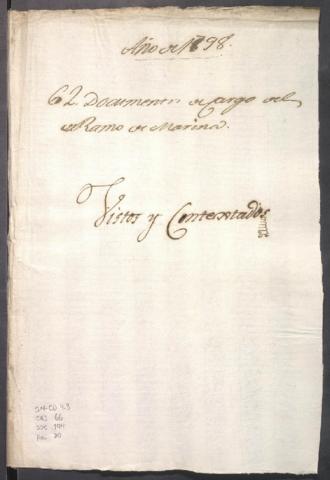 Año de 1798.
62 Documentos de Cargo del
Ramo de Marina.
Vistos y Contextados
CAJ 66